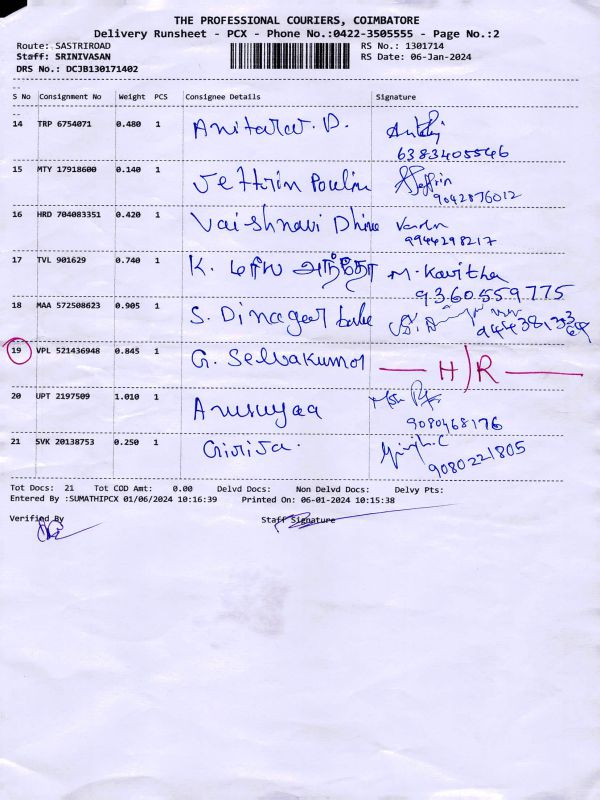 THE PROFESSIONAL COURIERS, COIMBATORE
Delivery Runsheet - PCX - Phone No.:0422-3505555 - Page No.:2
Route: SASTRIROAD RS No.: 1301714
Staff: SRINIVASAN RS Date: 06-Jan-2024
DRS No.: DCJB130171402
S No Consignment No Weight PCS Consignee Details Signature
14 TRP 6754071 0.480 1 Anitarav. D.
6383405546
15 MTY 17918600 0.140 1 Jeffrin Poulin Jeffrin
9042876012
16 HRD 704083351 0.420 1 Vaishnavi
9944298217
17 TVL 901629 0.740 1 K. M. Kavitha
9360559775
18 MAA 572508623 0.905 1 S. Dinageer babu
19 VPL 521436948 0.845 1 G. Selvakumar H/R
20 UPT 2197509 1.010 1 Anusuyaa
9080468176
21 SVK 20138753 0.250 1 Girija.
9080221805
Tot Docs: 21 Tot COD Amt: 0.00 Delvd Docs: Non Delvd Docs: Delvy Pts:
Entered By :SUMATHIPCX 01/06/2024 10:16:39 Printed On: 06-01-2024 10:15:38
Verified By Staff Signature